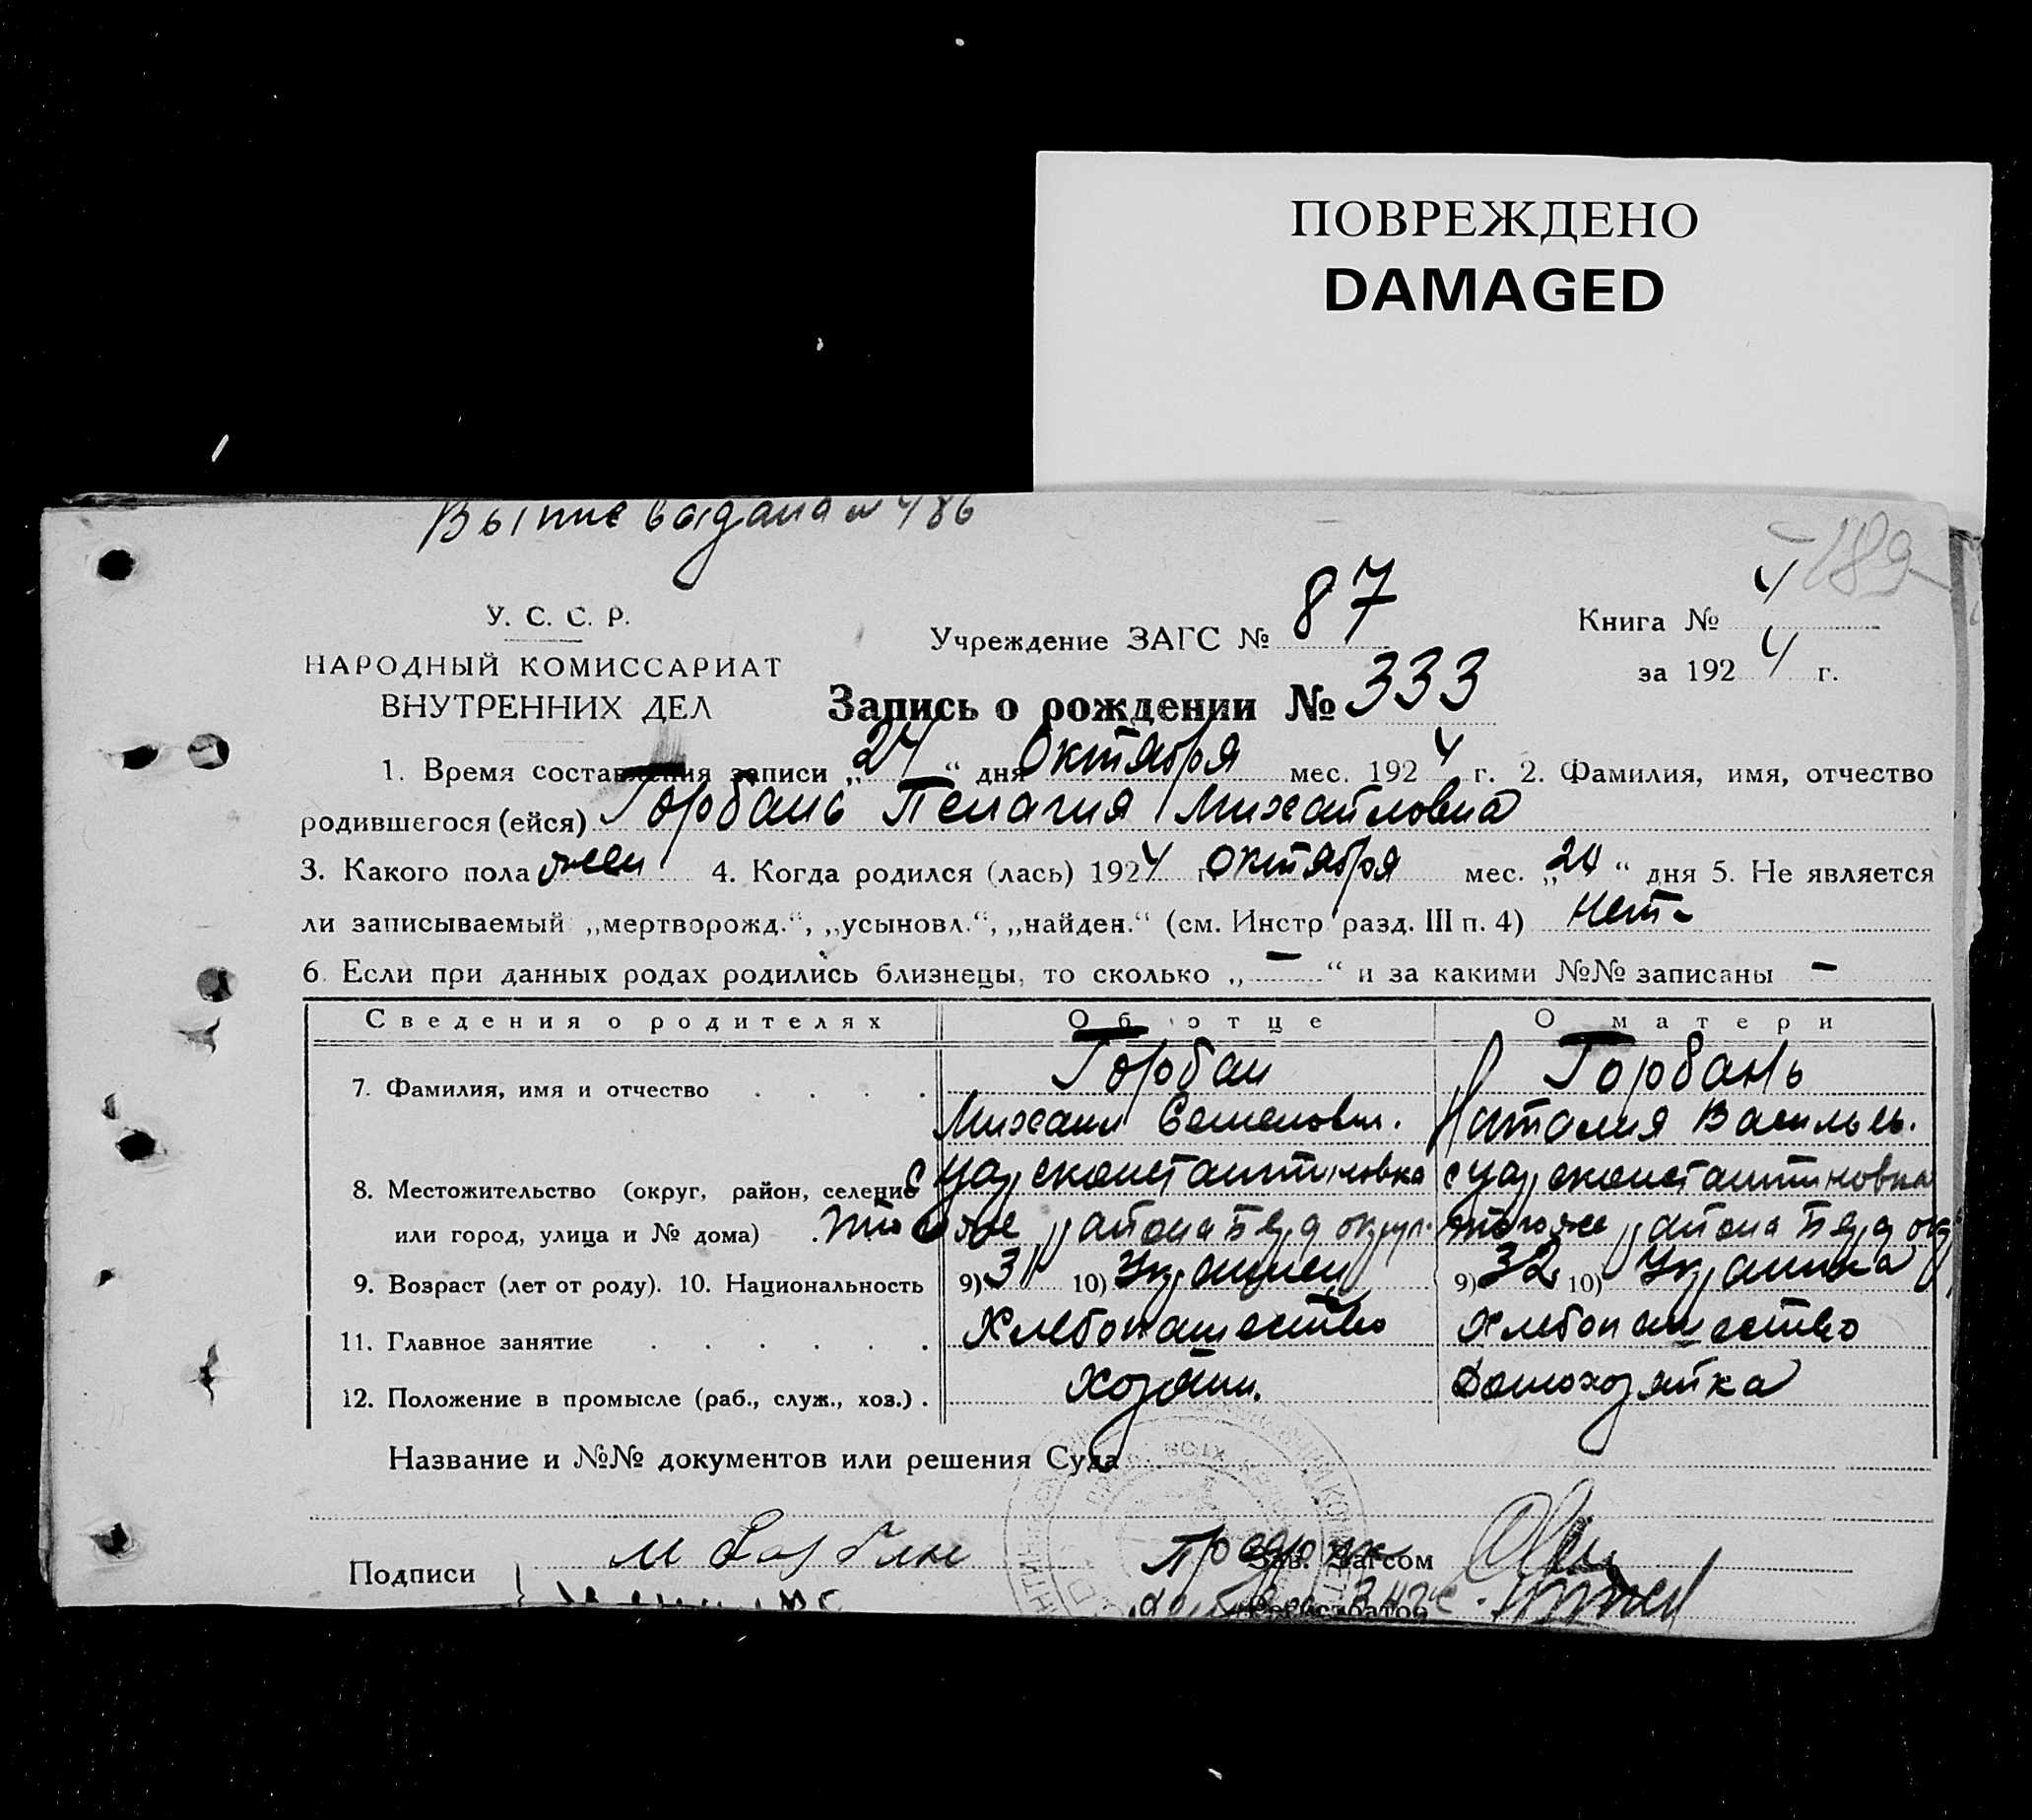 ПОВРЕЖДЕНО
DAMAGED
189
У. С. С. Р.
НАРОДНЫЙ КОМИССАРИАТ
ВНУТРЕННИХ ДЕЛ
Учреждение ЗАГС № 87
Книга № 4
за 1924 г.
Запись о рождении № 333
1. Время составления записи „24“ дня Октября мес. 1924 г. 2. Фамилия, имя, отчество
родившегося (ейся) Горбань Пелагия Михайловна
3. Какого пола жен 4. Когда родился (лась) 1924 г. октября мес. „24“ дня 5. Не является
ли записываемый „мертворожд.“, „усыновл.“, „найден.“ (см. Инстр разд. III п. 4) Нет-
6. Если при данных родах родились близнецы, то сколько „—“ и за какими №№ записаны —
Сведения о родителях Об отце О матери
7. Фамилия, имя и отчество Горбан Горбань
Михаил Семенович. Наталия Василь.
8. Местожительство (округ, район, селение с Цареконстантиновка с Цареконстантиновка
или город, улица и № дома) того же района Берд округ. того же района Берд окр
9. Возраст (лет от роду). 10. Национальность 9) 31 10) Украинец 9) 32 10) Украинка
11. Главное занятие Хлебопашество Хлебопашество
12. Положение в промысле (раб., служ., хоз.) Хозяин. Домохозяйка
Название и №№ документов или решения Суда
Подписи М Горбан Зав. Загсом
Регистратор